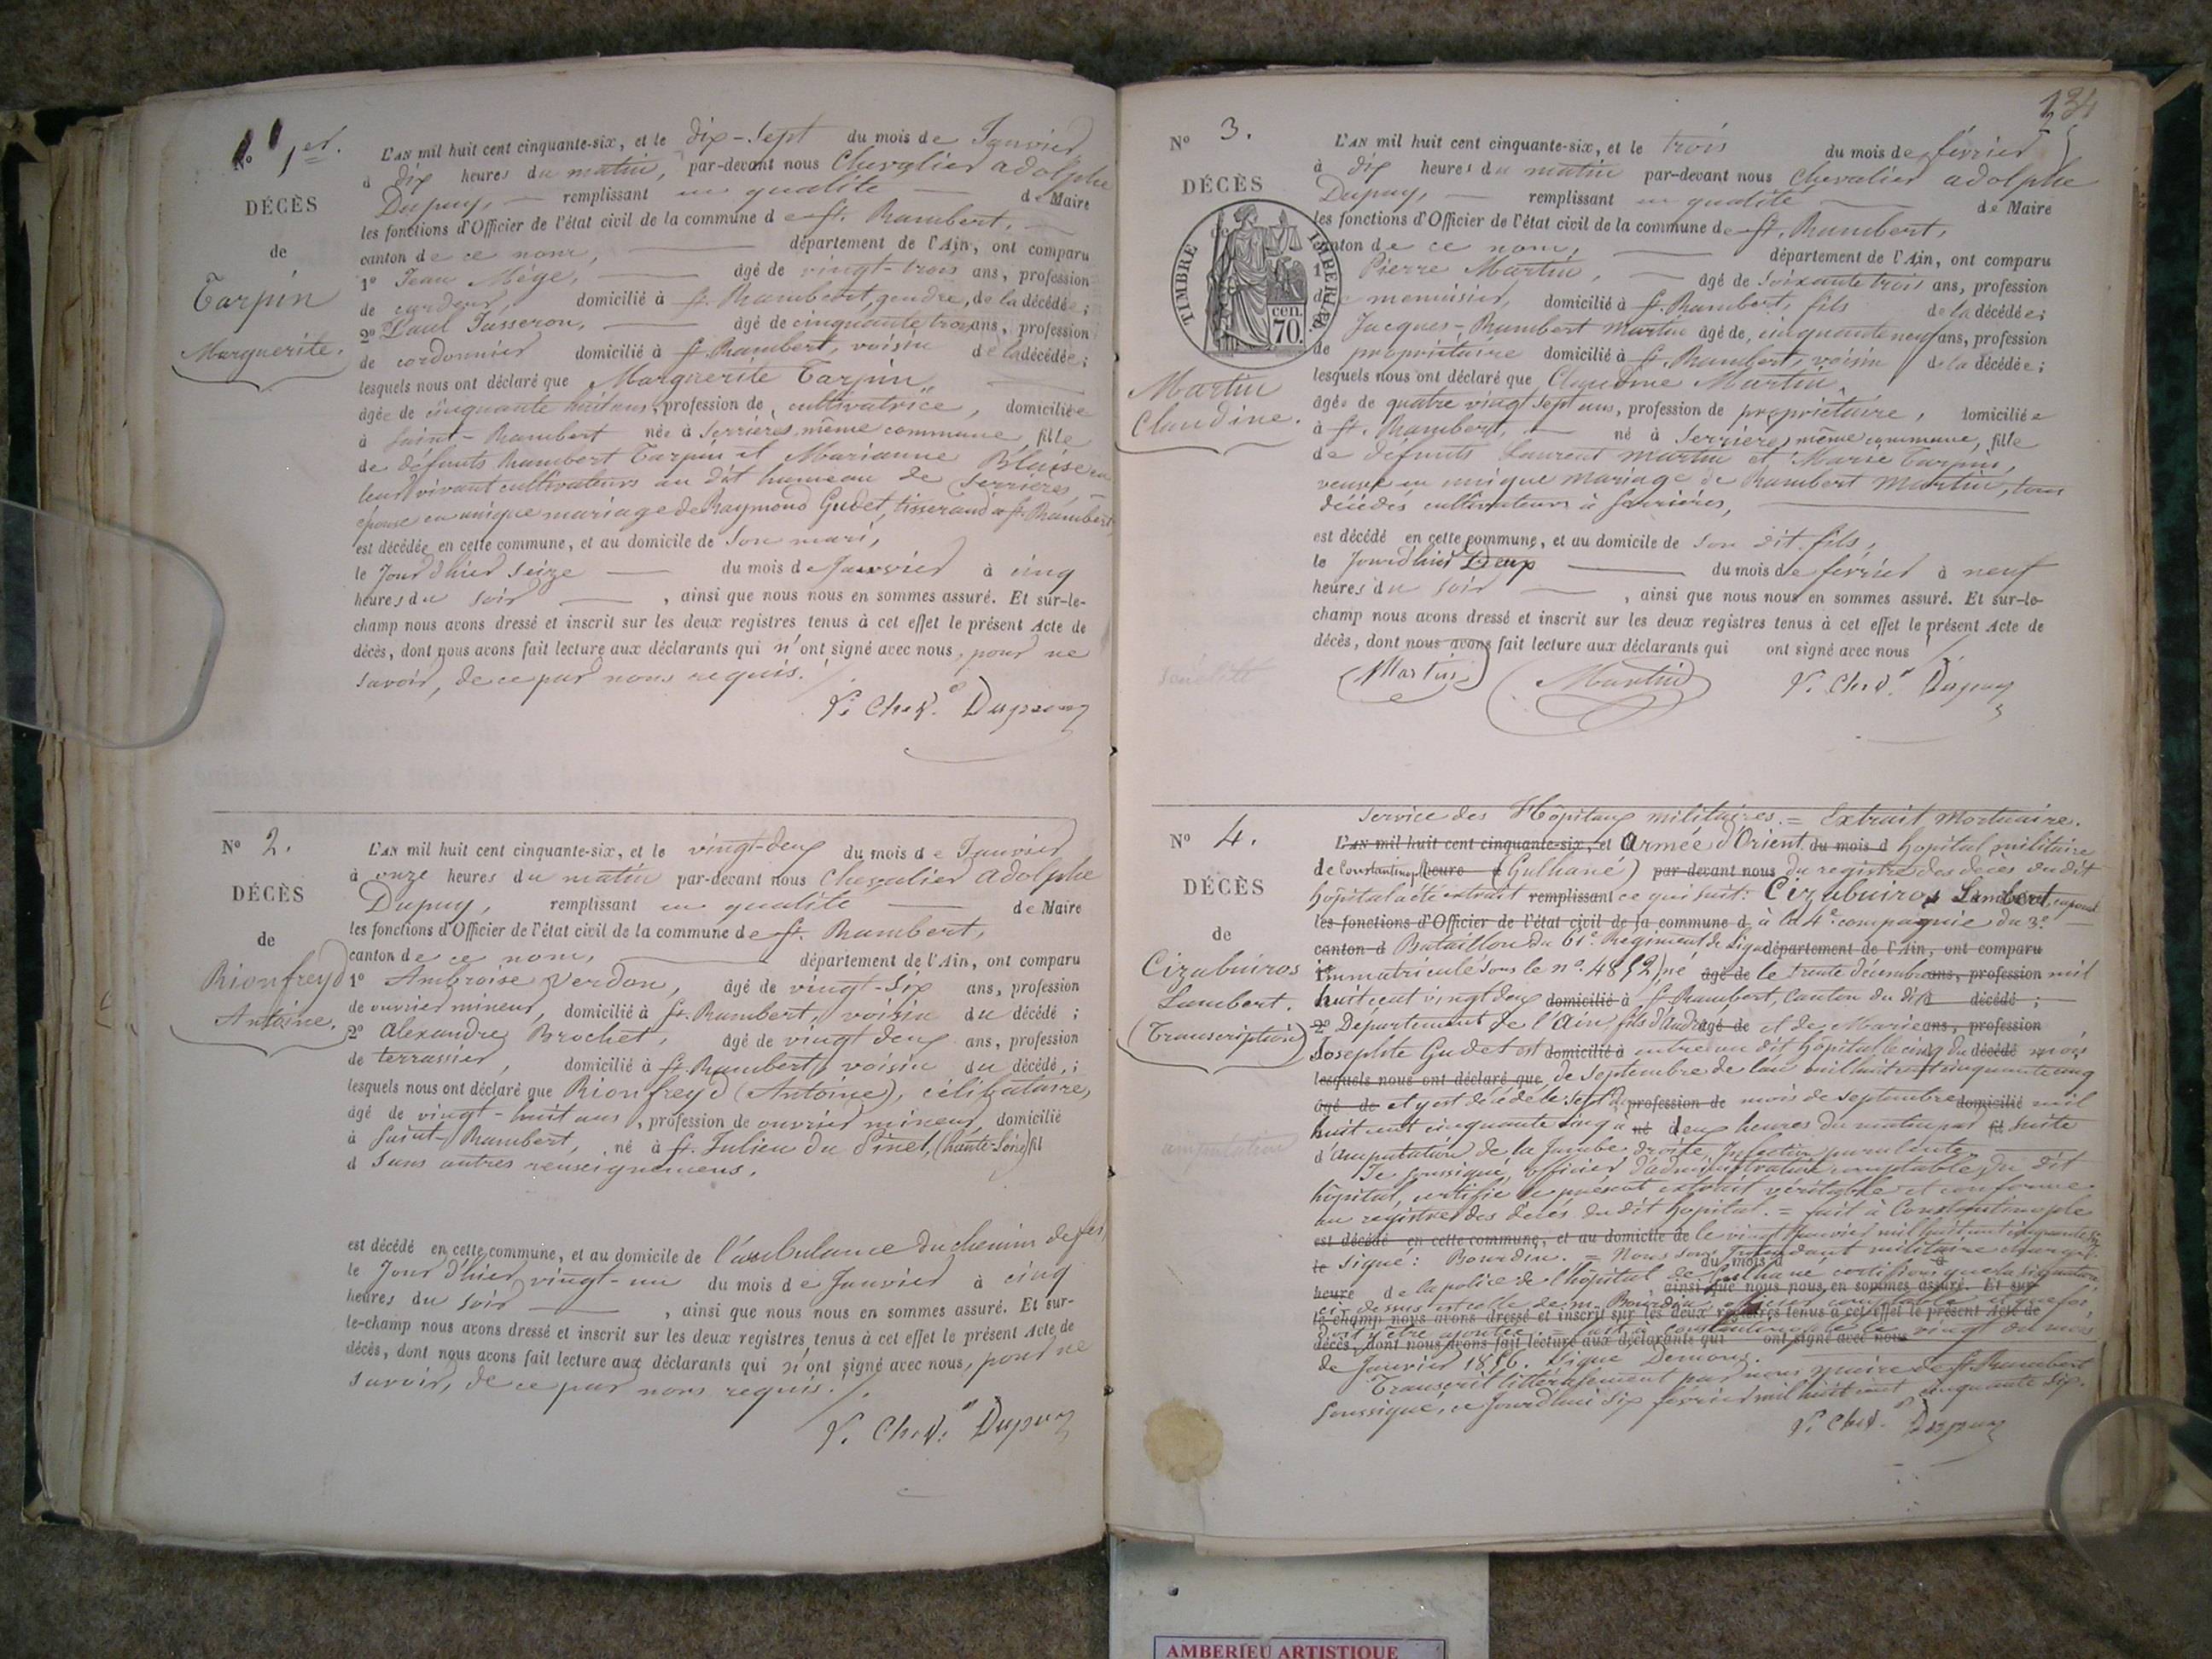 N° 1er.
DÉCÈS
de
Tarpin
Marguerite.
L'AN mil huit cent cinquante-six, et le dix-sept du mois de Janvier
à dix heures du matin, par-devant nous Chevalier adolphe
Dupuy, remplissant en qualité de Maire
les fonctions d'Officier de l'état civil de la commune de St. Rambert,
canton de ce nom, département de l'Ain, ont comparu
1° Jean Mége, âgé de vingt-trois ans, profession
de cardeur, domicilié à St. Rambert, gendre, de la décédée;
2° Paul Jusseron, âgé de cinquante trois ans, profession
de cordonnier domicilié à St. Rambert, voisin de la décédée;
lesquels nous ont déclaré que Marguerite Tarpin,
âgée de cinquante huit ans, profession de cultivatrice, domiciliée
à Saint-Rambert née à Serrières même commune, fille
de défunts Rambert Tarpin et Marianne Blaise en
leur vivant cultivateurs au dit hameau de Serrières,
épouse en unique mariage de Raymond Gudet, tisserand à St. Rambert,
est décédée en cette commune, et au domicile de son mari,
le Jour d'hier seize du mois de Janvier à cinq
heures du soir, ainsi que nous nous en sommes assuré. Et sur-le-
champ nous avons dressé et inscrit sur les deux registres tenus à cet effet le présent Acte de
décès, dont nous avons fait lecture aux déclarants qui n'ont signé avec nous, pour ne
savoir, de ce par nous requis.
Chev. Dupuy
N° 2.
DÉCÈS
de
Rionfreyd
Antoine.
L'AN mil huit cent cinquante-six, et le vingt-deux du mois de Janvier
à onze heures du matin par-devant nous Chevalier Adolphe
Dupuy, remplissant en qualité de Maire
les fonctions d'Officier de l'état civil de la commune de St. Rambert,
canton de ce nom, département de l'Ain, ont comparu
1° Ambroise Verdon, âgé de vingt-six ans, profession
de ouvrier mineur, domicilié à St. Rambert, voisin du décédé;
2° Alexandre Brochet, âgé de vingt deux ans, profession
de terrassier, domicilié à St. Rambert, voisin du décédé,;
lesquels nous ont déclaré que Rionfreyd (Antoine), célibataire,
âgé de vingt-huit ans, profession de ouvrier mineur, domicilié
à Saint-Rambert, né à St. Julien du Pinet, (haute-Loire) fil
d sans autres renseignemens.
est décédé en cette commune, et au domicile de l'ambulance du chemin de fer,
le Jour d'hier vingt-un du mois de Janvier à cinq
heures du soir, ainsi que nous nous en sommes assuré. Et sur-
le-champ nous avons dressé et inscrit sur les deux registres tenus à cet effet le présent Acte de
décès, dont nous avons fait lecture aux déclarants qui n'ont signé avec nous, pour ne
savoir, de ce par nous requis.
Chev. Dupuy
134
N° 3.
DÉCÈS
de
TIMBRE IMPÉRIAL
70 cen.
Martin
Claudine.
L'AN mil huit cent cinquante-six, et le trois du mois de février
à dix heures du matin par-devant nous Chevalier adolphe
Dupuy, remplissant en qualité de Maire
les fonctions d'Officier de l'état civil de la commune de St. Rambert,
canton de ce nom, département de l'Ain, ont comparu
1° Pierre Martin, âgé de soixante trois ans, profession
de menuisier, domicilié à St. Rambert, fils de la décédée;
Jacques-Rambert Martin âgé de cinquante neuf ans, profession
de propriétaire domicilié à St. Rambert, voisin de la décédée;
lesquels nous ont déclaré que Claudine Martin,
âgée de quatre vingt sept ans, profession de propriétaire, domiciliée
à St. Rambert, né à Serrières même commune, fille
de défunts Laurent Martin et Marie Tarpin,
veuve en unique mariage de Rambert Martin, tous
décédés cultivateurs à Serrières,
est décédé en cette commune, et au domicile de son dit fils,
le Jour d'hier deux du mois de février à neuf
heures du soir, ainsi que nous nous en sommes assuré. Et sur-le-
champ nous avons dressé et inscrit sur les deux registres tenus à cet effet le présent Acte de
décès, dont nous avons fait lecture aux déclarants qui ont signé avec nous
Martin Martin Chev. Dupuy
N° 4.
DÉCÈS
de
Cirabuiros
Lambert.
(Transcription)
amputation
Service des Hôpitaux militaires. = Extrait Mortuaire.
L'AN mil huit cent cinquante-six, et Armée d'Orient du mois d hopital militaire
de Constantinople heure (Gulhané) par-devant nous du registre des décès du dit
hôpital a été extrait remplissant ce qui suit: Cirabuiros Lambert, caporal
les fonctions d'Officier de l'état civil de la commune d à la 4e compagnie du 3e
canton d Bataillon du 61e Régiment de Ligne département de l'Ain, ont comparu
immatriculé sous le n° 4852, né âgé de le trente décembre ans, profession mil
huit cent vingt deux domicilié à St. Rambert, Canton du dit décédé;
2° Département de l'Ain, fils d'André âgé de et de Marie ans, profession
Josephte Gudet est domicilié à entré au dit hôpital le cinq du décédé mois
lesquels nous ont déclaré que de Septembre de l'an mil huit cent cinquante cinq
âgé de et y est décédé le sept du profession de mois de septembre domicilié mil
huit cent cinquante cinq à né deux heures du matin par fil suite
d'amputation de la jambe droite, Infection purulente.
Je soussigné, officier d'administration comptable du dit
hôpital, certifie le présent extrait véritable et conforme
au registre des décès du dit hopital. = fait à Constantinople
est décédé en cette commune, et au domicile de le vingt Janvier mil huit cent cinquante six
le Signé: Bourdin. = Nous sous Intendant militaire chargé du mois d
heure de la police de l'hôpital de Gulhané certifions que la signature ainsi que nous nous en sommes assuré. Et sur-
ci-dessus est celle de M. Bourdin, officier comptable et que foi
le-champ nous avons dressé et inscrit sur les deux registres tenus à cet effet le présent Acte de
doit y être ajoutée. = fait à Constantinople le vingt du mois
décès, dont nous avons fait lecture aux déclarants qui ont signé avec nous
de Janvier 1856. Signé
Transcrit littéralement par nous maire de St. Rambert
soussigné, ce Jourd'hui six février mil huit cent cinquante six.
Chev. Dupuy
AMBERIEU ARTISTIQUE